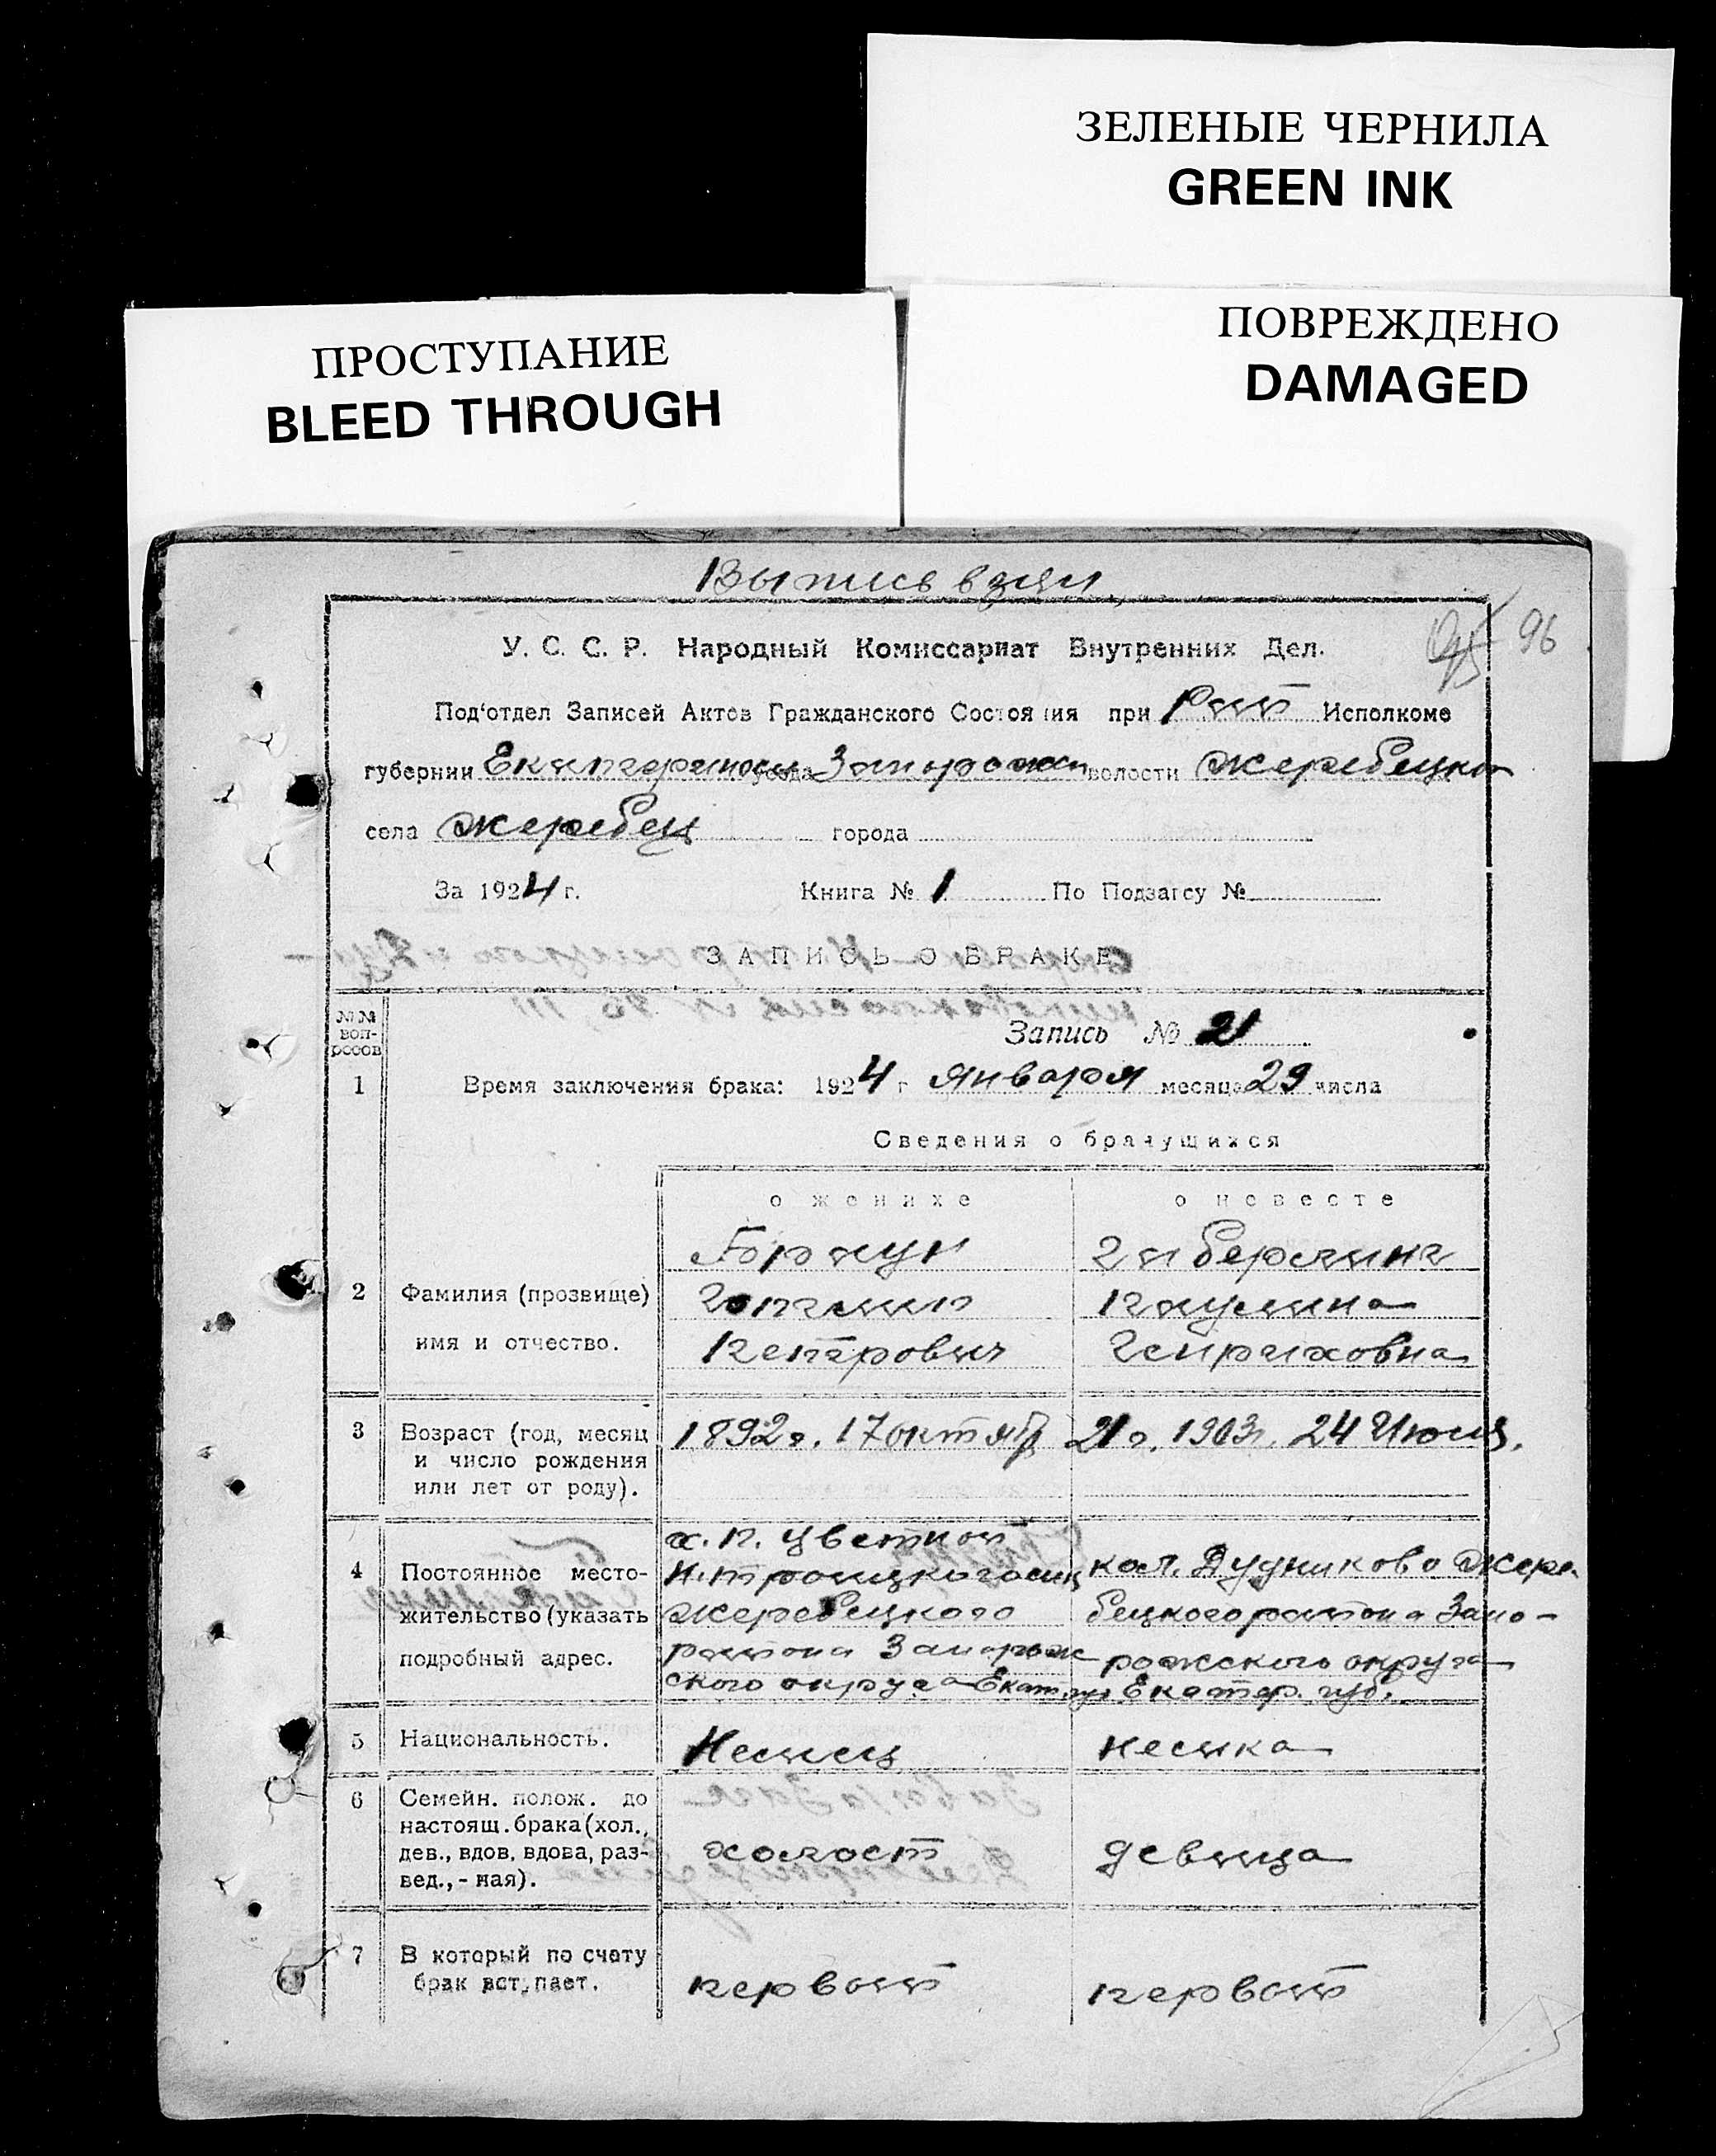 ЗЕЛЕНЫЕ ЧЕРНИЛА
GREEN INK
ПОВРЕЖДЕНО
DAMAGED
ПРОСТУПАНИЕ
BLEED THROUGH
Выпись взяли
96
У. С. С. Р. Народный Комиссариат Внутренних Дел.
Под'отдел Записей Актов Гражданского Состояния при Рай Исполкоме
губернии уезда волости Жеребецкой
села Жеребец города
За 1924 г. Книга № 1 По Подзагсу №
ЗАПИСЬ О БРАКЕ
№№ воп-росов
Запись № 21
1 Время заключения брака: 1924 г января месяца 29 числа
Сведения о брачущихся
о женихе о невесте
Браун
2 Фамилия (прозвище)
имя и отчество. Петрович Генриховна
3 Возраст (год, месяц 1892 г. 17 октяб 21 г. 1903 г. 24 Июня.
и число рождения
или лет от роду).
х. п. Цветной
4 Постоянное место- Н. троицкого кол. Дудниково Жере-
жительство (указать Жеребецкого бецкого района Запо-
подробный адрес. района Запорож рожского округа
ского округа Екат. губ Екатер. губ.
5 Национальность. Немец немка
6 Семейн. полож. до
настоящ. брака (хол.,
дев., вдов, вдова, раз- холост девица
вед., - ная).
7 В который по счету
брак вступает. первый первый